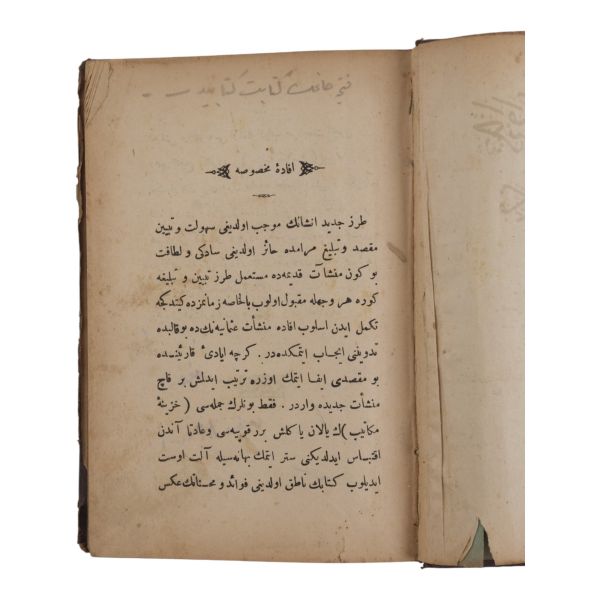 افادهٔ مخصوصه
طرز جدید انشانك موجب اولدیغی سهولت و تبیین
مقصد و تبلیغ مرامده حائز اولدیغی سادكی و لطافت
بو كون منشآت قدیمه‌ده مستعمل طرز تبیین و تبلیغه
كوره هر وجهله مقبول اولوب بالخاصه زمانمزده كیتدكجه
تكمل ایدن اسلوب افاده منشأت عثمانیه‌نك ده بو قالبده
تدویننی ایجاب ایتمكده‌در . كرچه ایادئ قارئینده
بو مقصدی ایفا ایتمك اوزره ترتیب ایدلش بر قاچ
منشأت جدیده واردر . فقط بونلرك جمله‌سی ( خزینهٔ
مكاتیب )ك یالان یاكلش برر قوپیه‌سی وعادتا آندن
اقتباس ایدلدیكنی ستر ایتمك بهانه‌سیله آلت اوست
ایدیلوب كتابك ناطق اولدیغی فوائد و محسناتك عكس